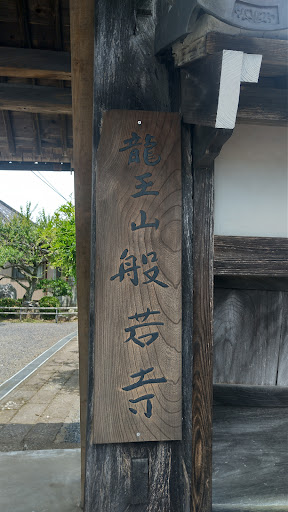 龍王山般若寺